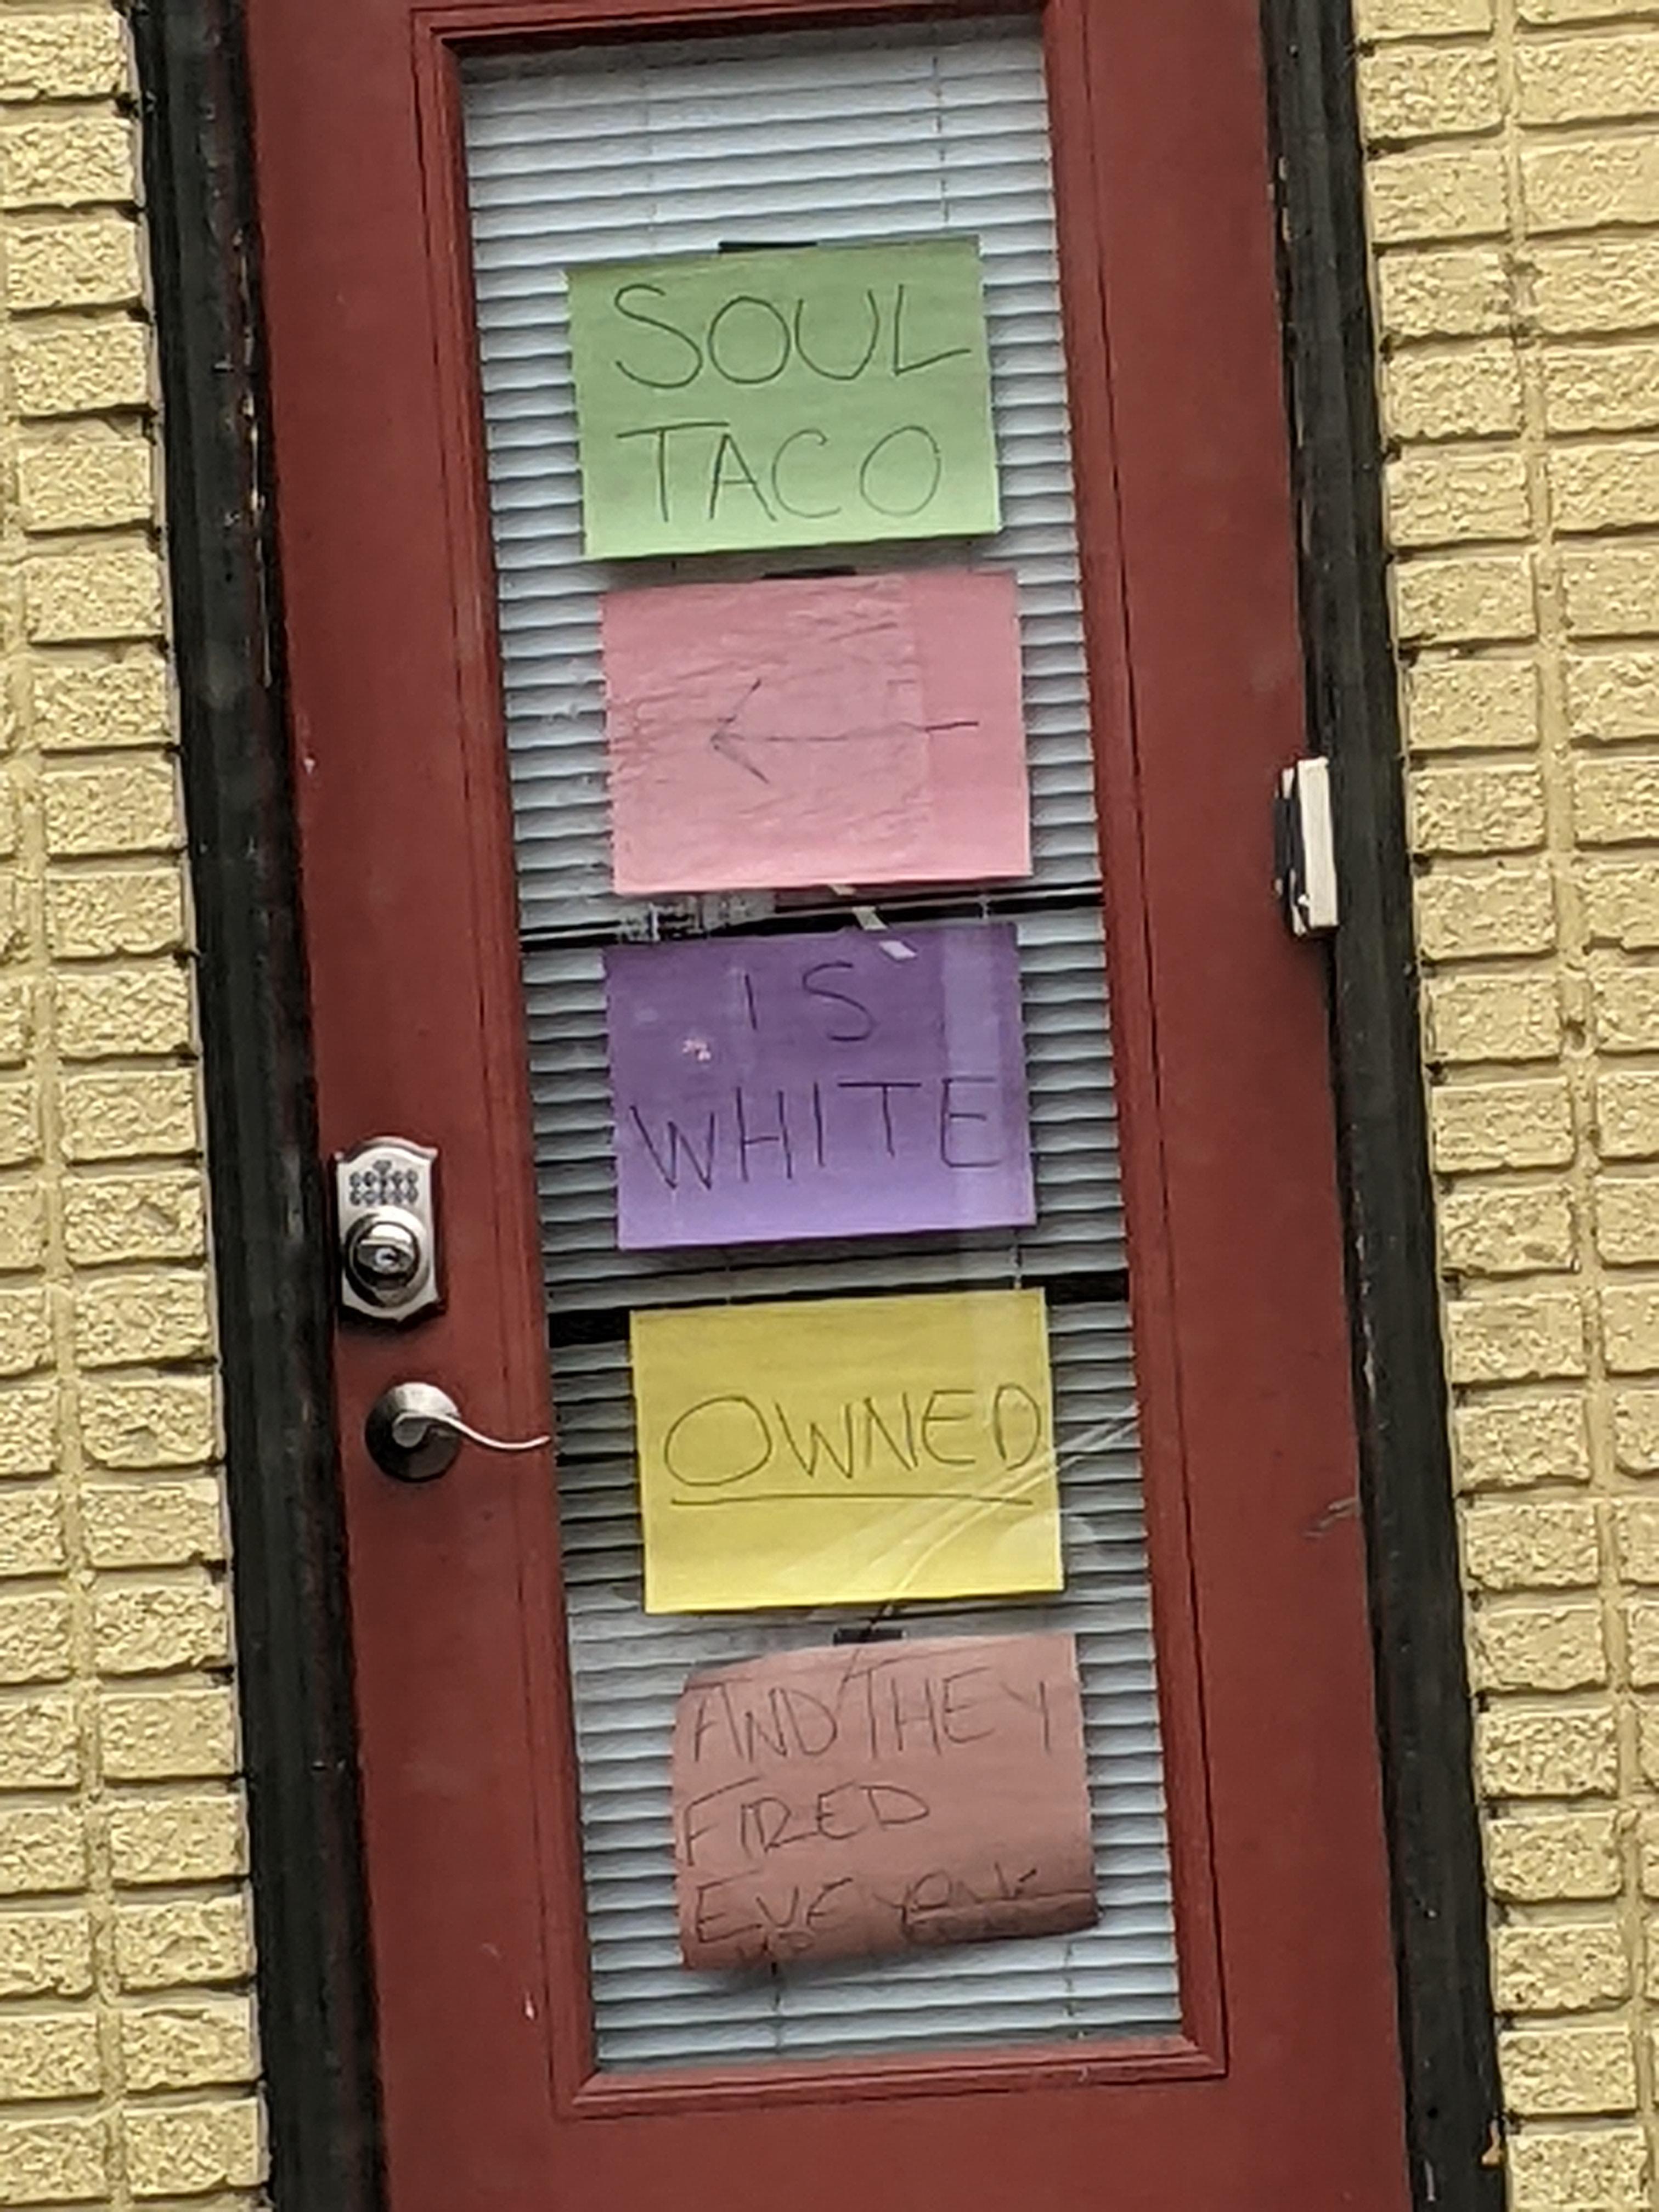 SOUL
TACO
IS
WHITE
OWNED
AND THEY
FIRED
EVEYONE